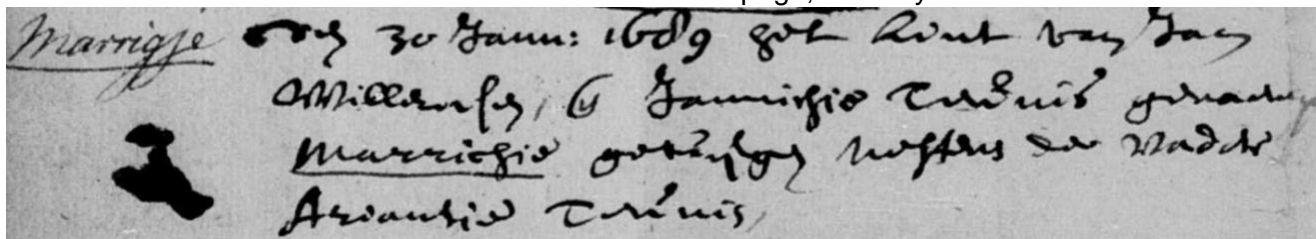 Marrigje den 30 Janu: 1689 het kint van Jan
Willemsen, bij Jannichie Teünis genaemt
Marrichie getuijgen neffens de vader
Ariaentie Teünis,